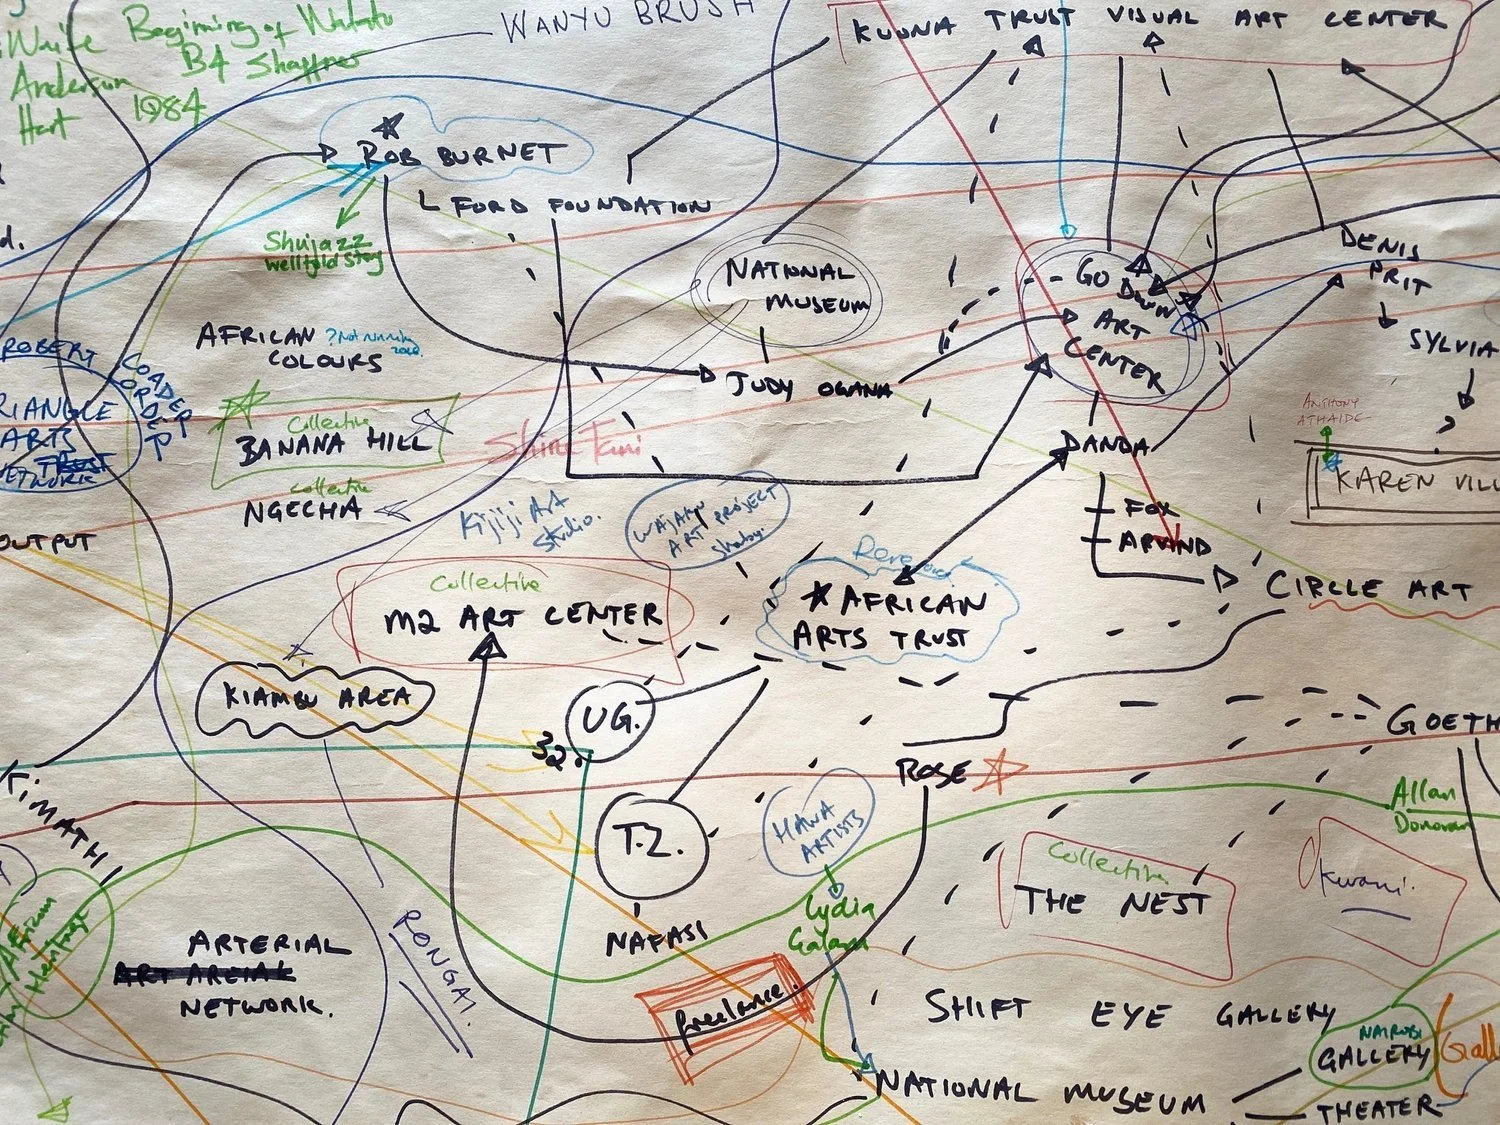 WANYU BRUSH
KUONA TRUST VISUAL ART CENTER
Beginning of
B4 Shaffner
Anderson
Hart 1984
ROB BURNET
FORD FOUNDATION
Shujazz
wellfold story
NATIONAL
MUSEUM
GO
DOWN
ART
CENTER
DENIS
PRIT
SYLVIA
AFRICAN
COLOURS
?Not running
ROBERT
LOADER
RIANGLE
ARTS
NETWORK
TREST
JUDY OGANA
Collective
BANANA HILL
Shine Tani
collective
NGECHA
Kijiji Art
Studio.
WAJAKU
ART PROJECT
DANDA
FOX
ARVIND
ANTHONY
ATHAIDE
KAREN VILL
OUTPUT
Collective
M2 ART CENTER
*AFRICAN
ARTS TRUST
CIRCLE ART
KIAMBU AREA
UG.
32.
GOETH
ROSE
TIMATHI
T.Z.
NAFASI
HAWA
ARTISTS
Lydia
Galavu
Allan
Donovan
Collective
THE NEST
Kwani.
ARTERIAL
ART AREIAL
NETWORK.
RONGAI
freelance.
SHIFT EYE GALLERY
NAIROBI
GALLERY
NATIONAL MUSEUM
THEATER